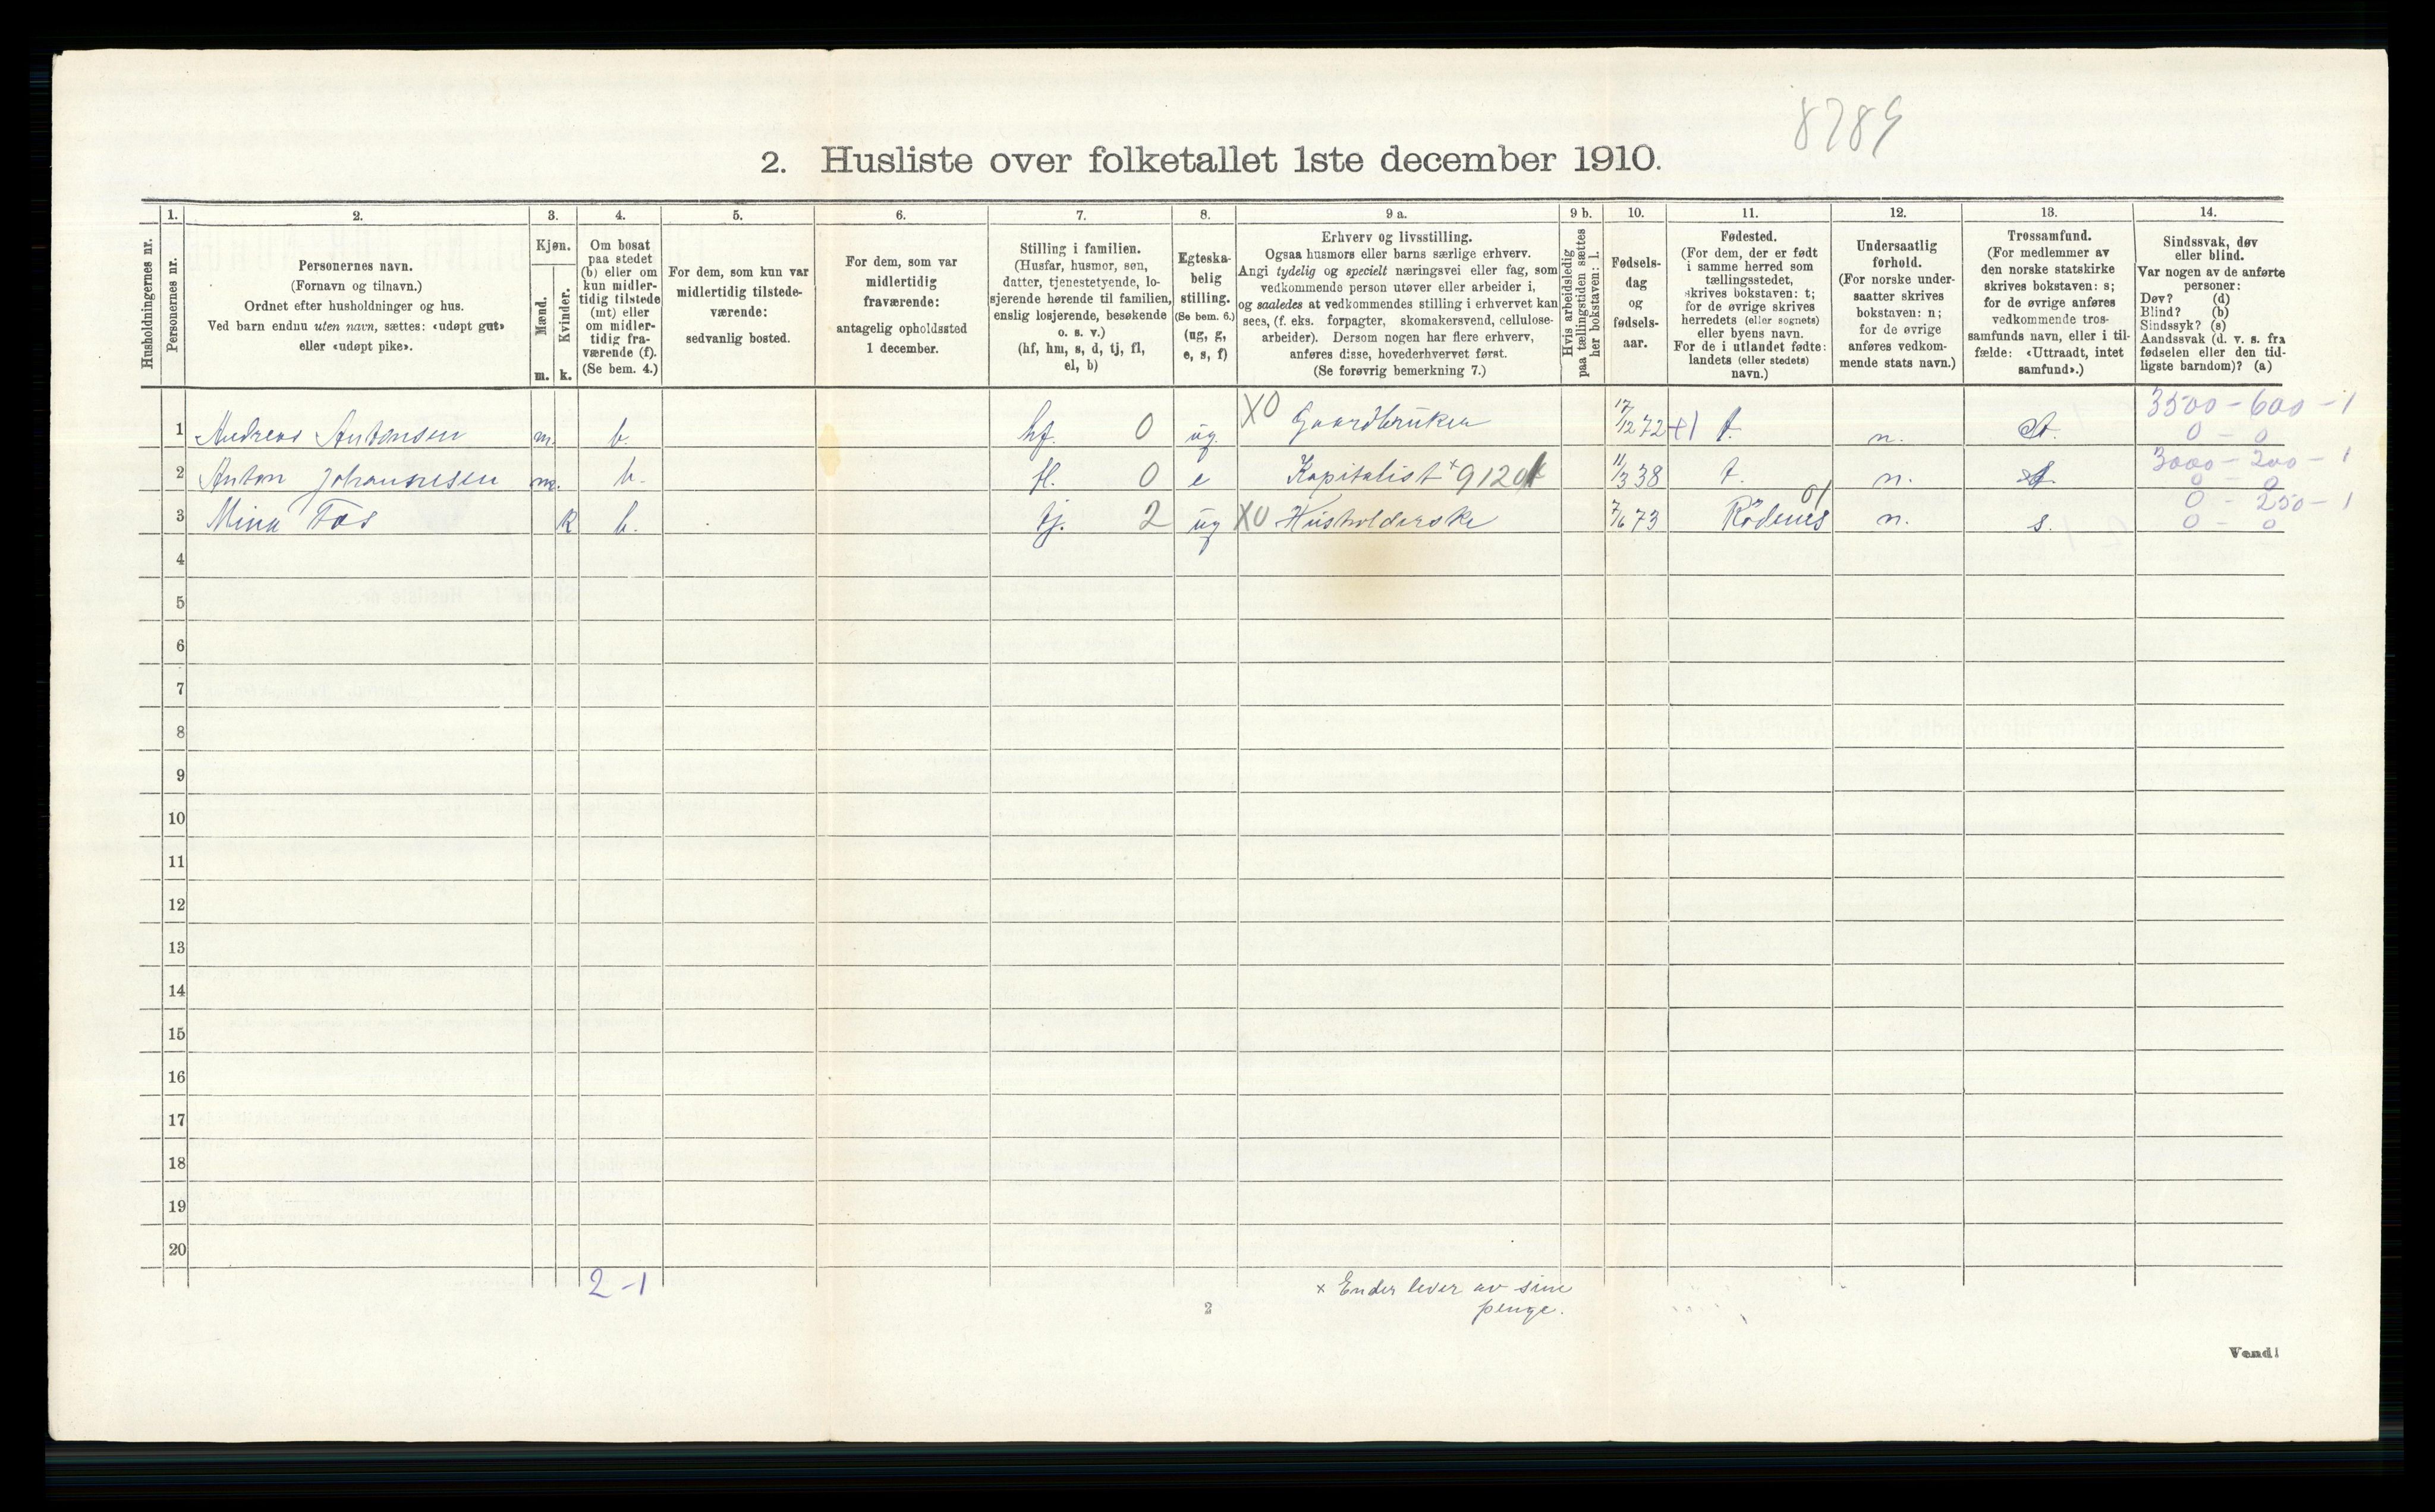 8789
2. Husliste over folketallet 1ste december 1910.
1. 2. 3. 4. 5. 6. 7. 8. 9 a. 9 b. 10. 11. 12. 13. 14.
Husholdningernes nr.
Personernes nr.
Personernes navn.
(Fornavn og tilnavn.)
Ordnet efter husholdninger og hus.
Ved barn endnu uten navn, sættes: «udøpt gut»
eller «udøpt pike».
Kjøn.
Mænd.
Kvinder.
m. k.
Om bosat
paa stedet
(b) eller om
kun midler-
tidig tilstede
(mt) eller
om midler-
tidig fra-
værende (f).
(Se bem. 4.)
For dem, som kun var
midlertidig tilstede-
værende:
sedvanlig bosted.
For dem, som var
midlertidig
fraværende:
antagelig opholdssted
1 december.
Stilling i familien.
(Husfar, husmor, søn,
datter, tjenestetyende, lo-
sjerende hørende til familien,
enslig losjerende, besøkende
o. s. v.)
(hf, hm, s, d, tj, fl,
el, b)
Egteska-
belig
stilling.
(Se bem. 6.)
(ug, g,
e, s, f)
Erhverv og livsstilling.
Ogsaa husmors eller barns særlige erhverv.
Angi tydelig og specielt næringsvei eller fag, som
vedkommende person utøver eller arbeider i,
og saaledes at vedkommendes stilling i erhvervet kan
sees, (f. eks. forpagter, skomakersvend, cellulose-
arbeider). Dersom nogen har flere erhverv,
anføres disse, hovederhvervet først.
(Se forøvrig bemerkning 7.)
Hvis arbeidsledig
paa tællingstiden sættes
her bokstaven: l.
Fødsels-
dag
og
fødsels-
aar.
Fødested.
(For dem, der er født
i samme herred som
tællingsstedet,
skrives bokstaven: t;
for de øvrige skrives
herredets (eller sognets)
eller byens navn.
For de i utlandet fødte:
landets (eller stedets)
navn.)
Undersaatlig
forhold.
(For norske under-
saatter skrives
bokstaven: n;
for de øvrige
anføres vedkom-
mende stats navn.)
Trossamfund.
(For medlemmer av
den norske statskirke
skrives bokstaven: s;
for de øvrige anføres
vedkommende tros-
samfunds navn, eller i til-
fælde: «Uttraadt, intet
samfund».)
Sindssvak, døv
eller blind.
Var nogen av de anførte
personer:
Døv? (d)
Blind? (b)
Sindssyk? (s)
Aandssvak (d. v. s. fra
fødselen eller den tid-
ligste barndom)? (a)
3500 - 600 - 1
1 Andreas Antonsen m. b. hf. 0 ug. X0 Gaardbruker 17/12 72 t. n. 0 - 0
3000 - 200 - 1
2 Anton Johannesen m. b. fl. 0 e Kapitalist x 9120 11/3 38 t. n. 0 - 0
0 - 250 - 1
3 Mina Fos k b. tj. 2 ug X0 Husholderske 7/6 73 Rödenes 01 n. s. 0 - 0
4
5
6
7
8
9
10
11
12
13
14
15
16
17
18
19
20
2 - 1
x Ender lever av sine
penge.
2
Vend!